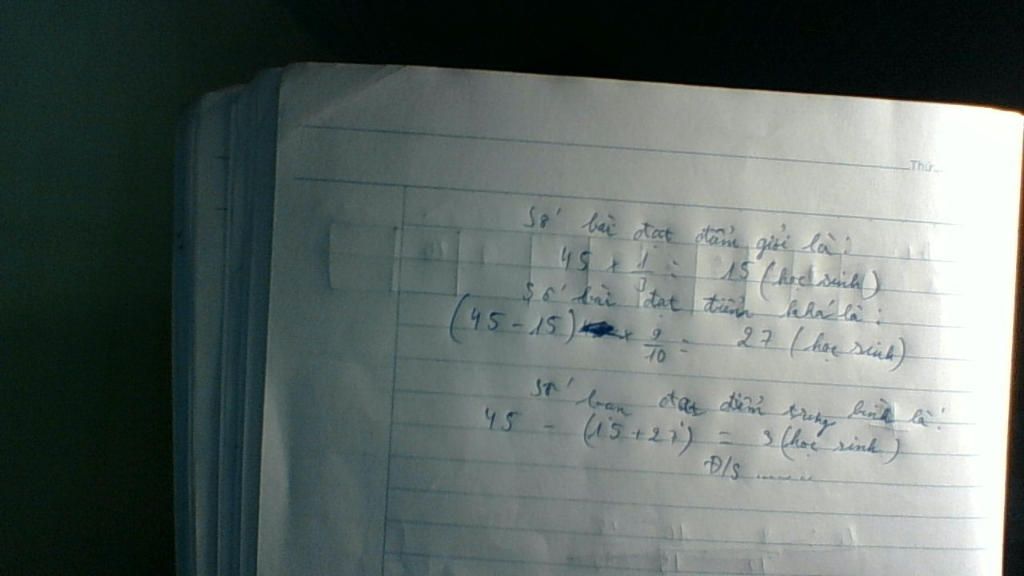 Thứ
Số bài đạt điểm giỏi là:
45 × 1/3 = 15 (học sinh)
Số bài đạt điểm khá là:
(45 - 15) × 9/10 = 27 (học sinh)
Số bạn đạt điểm trung bình là:
45 - (15 + 27) = 3 (học sinh)
Đ/S .......